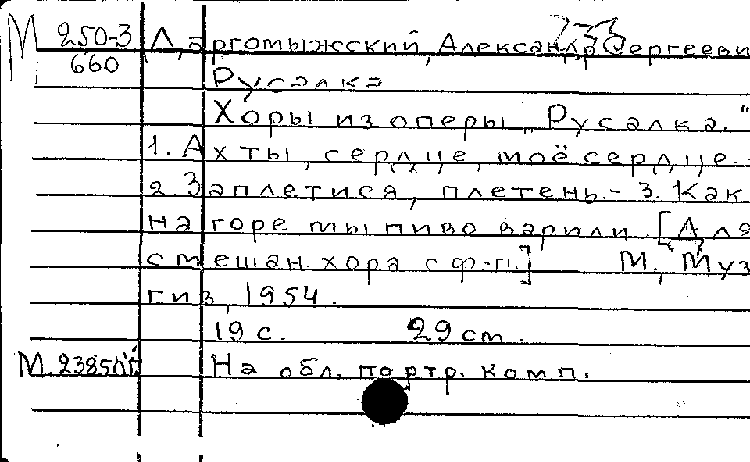 М 250-3
660
Даргомыжский, Александр Сергееви
Русалка
Хоры из оперы „Русалка."
1. Ах ты, сердце, моё сердце.
2. Заплетися, плетень. - 3. Как
на горе мы пиво варили. [Для
смешан. хора с ф-п.] М., Муз
гиз, 1954.
19 с. 29 см.
На обл. портр. комп.